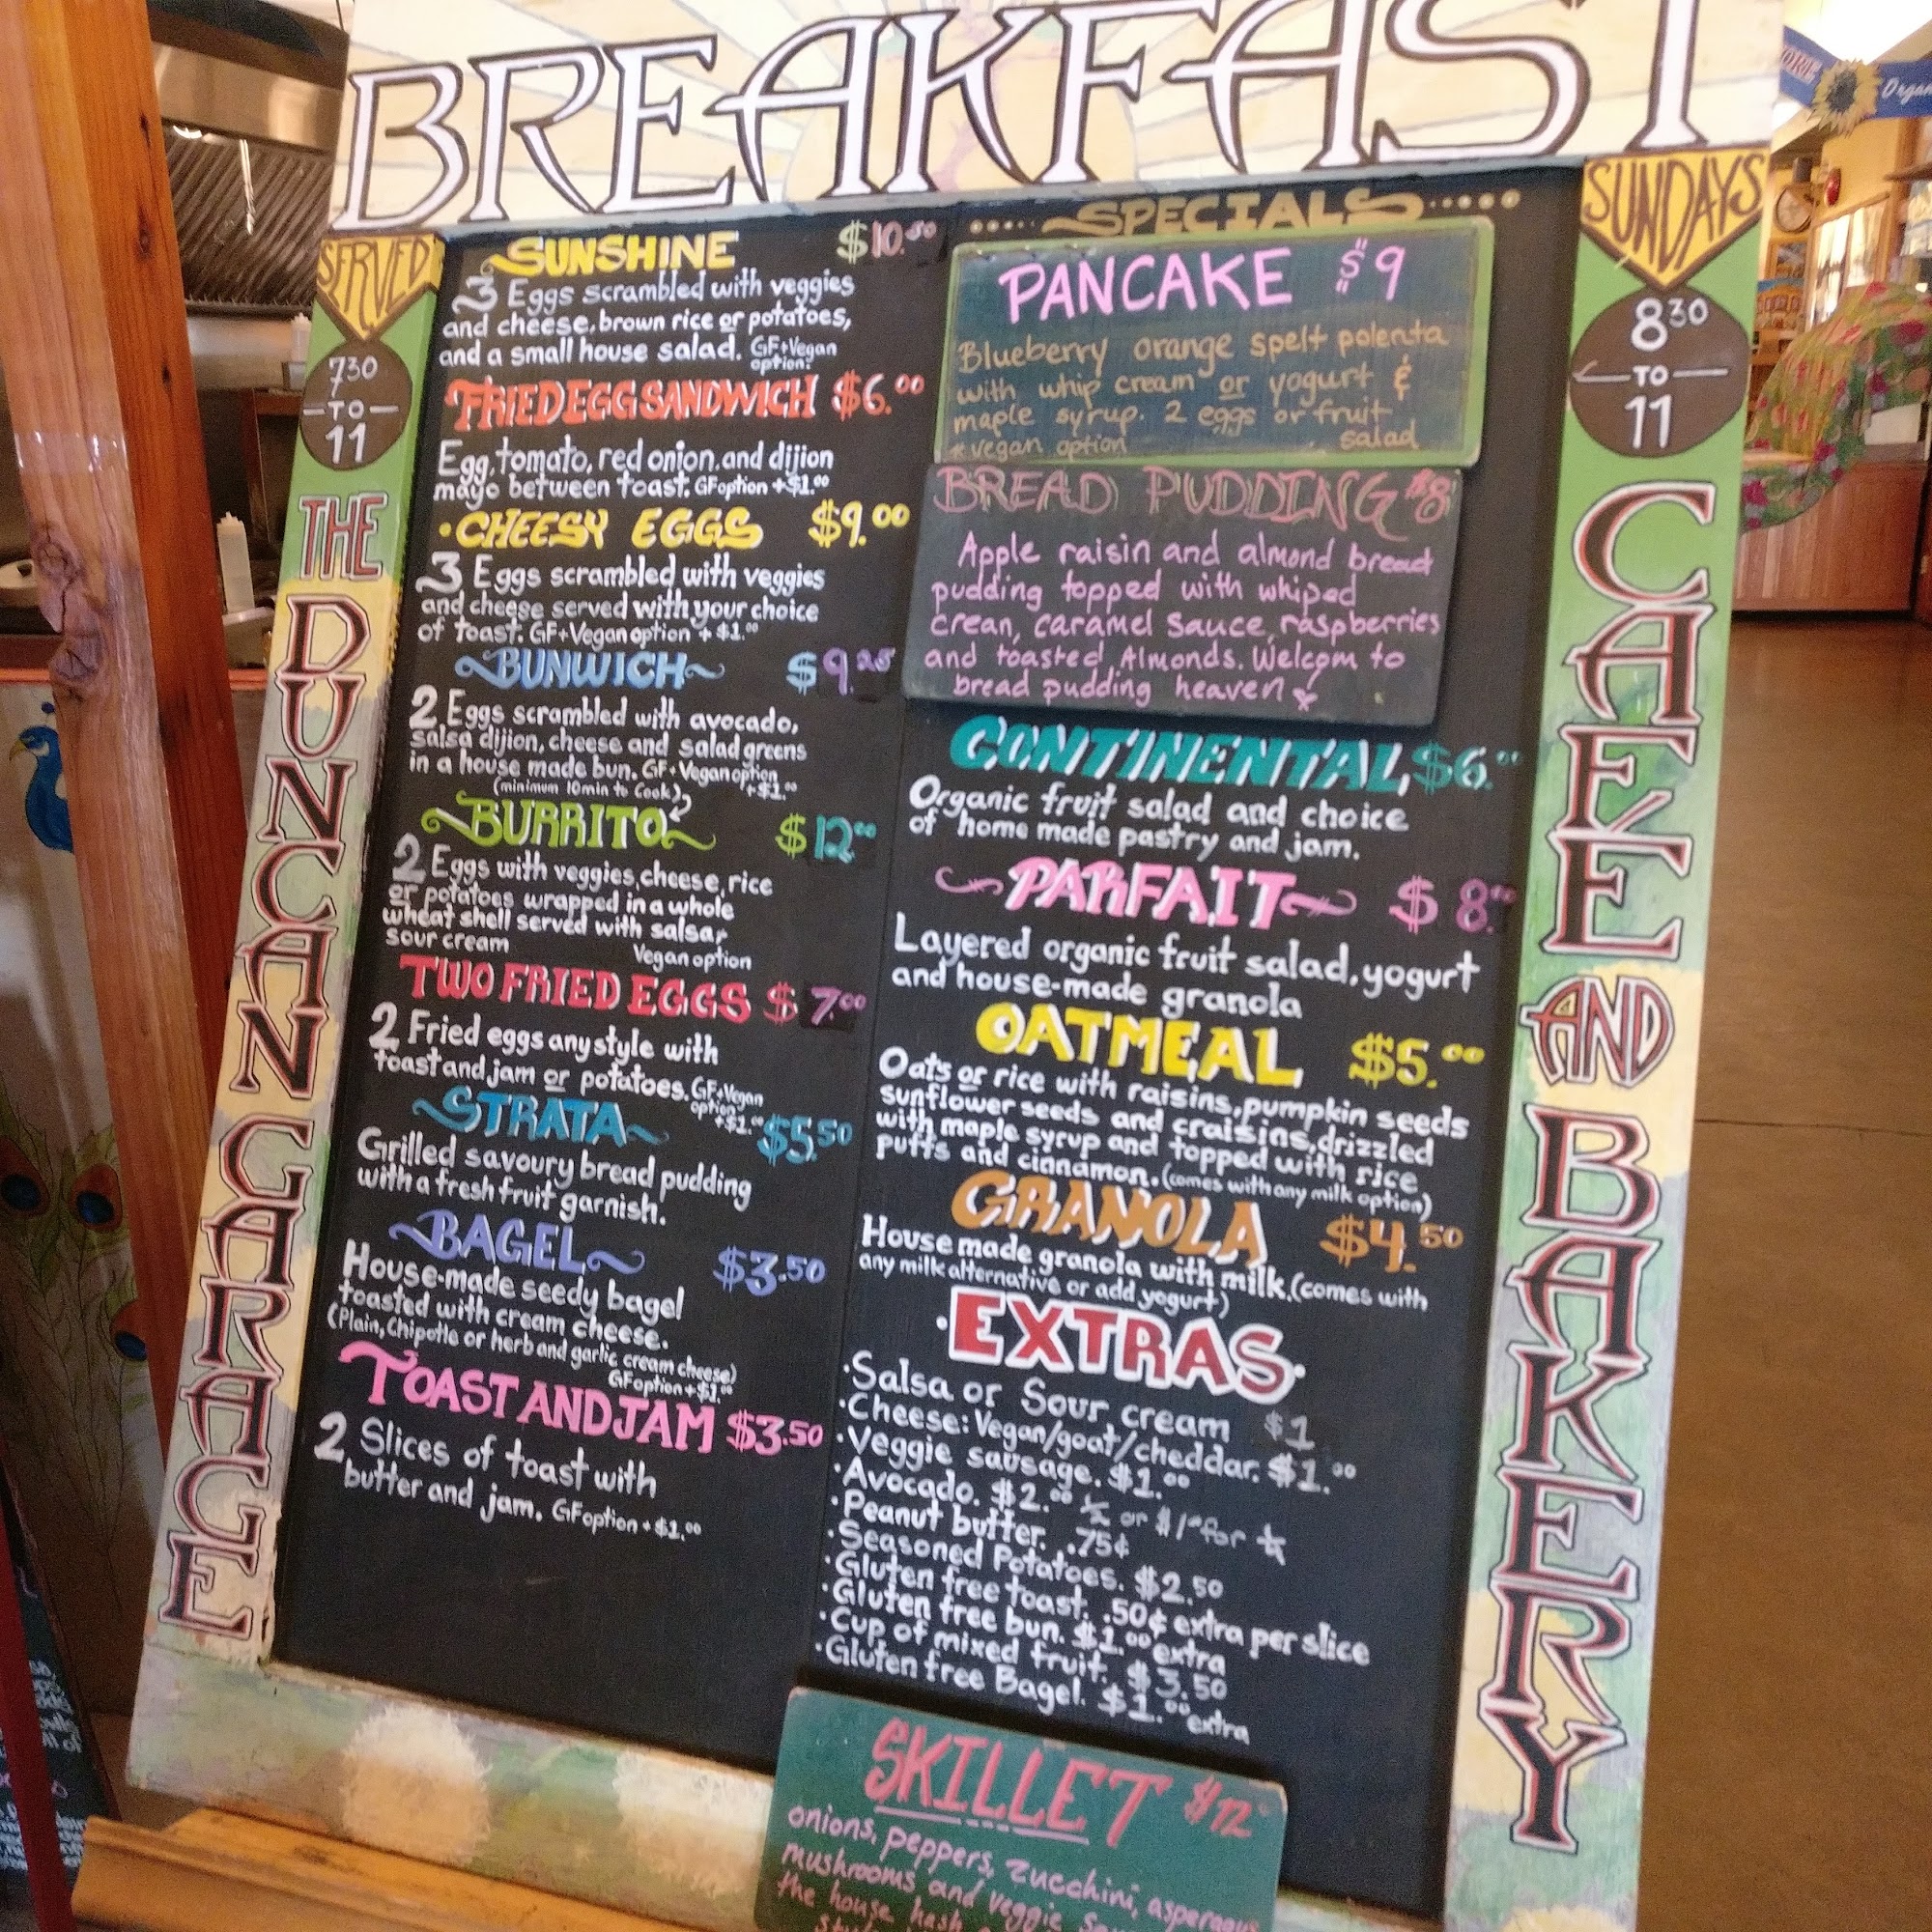 BREAKFAST
SERVED
7³⁰
TO
11
THE
DUNCAN
GARAGE
SUNSHINE $10.50
3 Eggs scrambled with veggies
and cheese, brown rice or potatoes,
and a small house salad. GF+Vegan
option.
FRIED EGG SANDWICH $6.00
Egg, tomato, red onion, and dijion
mayo between toast. GF option +$1.00
·CHEESY EGGS $9.00
3 Eggs scrambled with veggies
and cheese served with your choice
of toast. GF+Vegan option +$1.00
BUNWICH $9.25
2 Eggs scrambled with avocado,
salsa dijion, cheese and salad greens
in a house made bun. GF+Vegan option
+$1.00
(minimum 10min to Cook)
BURRITO $12.00
2 Eggs with veggies, cheese, rice
or potatoes wrapped in a whole
wheat shell served with salsa,
sour cream Vegan option
TWO FRIED EGGS $7.00
2 Fried eggs any style with
toast and jam or potatoes. GF+Vegan
option
+$1.00
STRATA $5.50
Grilled savoury bread pudding
with a fresh fruit garnish.
BAGEL $3.50
House-made seedy bagel
toasted with cream cheese.
(Plain, Chipotle or herb and garlic cream cheese)
GF option +$1.00
TOAST AND JAM $3.50
2 Slices of toast with
butter and jam. GF option +$1.00
SPECIALS
PANCAKE $9
Blueberry orange spelt polenta
with whip cream or yogurt &
maple syrup. 2 eggs or fruit
*vegan option salad
BREAD PUDDING $8
Apple raisin and almond bread
pudding topped with whiped
crean, caramel sauce, raspberries
and toasted Almonds. Welcom to
bread pudding heaven
CONTINENTAL $6.00
Organic fruit salad and choice
of home made pastry and jam.
PARFAIT $8.00
Layered organic fruit salad, yogurt
and house-made granola
OATMEAL $5.00
Oats or rice with raisins, pumpkin seeds
sunflower seeds and craisins, drizzled
with maple syrup and topped with rice
puffs and cinnamon. (comes with any milk option)
GRANOLA $4.50
House made granola with milk. (comes with
any milk alternative or add yogurt)
·EXTRAS·
·Salsa or Sour cream $1
·Cheese: Vegan/goat/cheddar. $1.00
·Veggie sausage. $1.00
·Avocado. $2.00 ½ or $1.00 for ¼
·Peanut butter. .75¢
·Seasoned Potatoes. $2.50
·Gluten free toast. .50¢ extra per slice
·Gluten free bun. $1.00 extra
·Cup of mixed fruit. $3.50
·Gluten free Bagel. $1.00 extra
SKILLET $12
onions, peppers, zucchini, asperagus
mushrooms and veggie
the house hash
SUNDAYS
8³⁰
TO
11
CAFE
AND
BAKERY